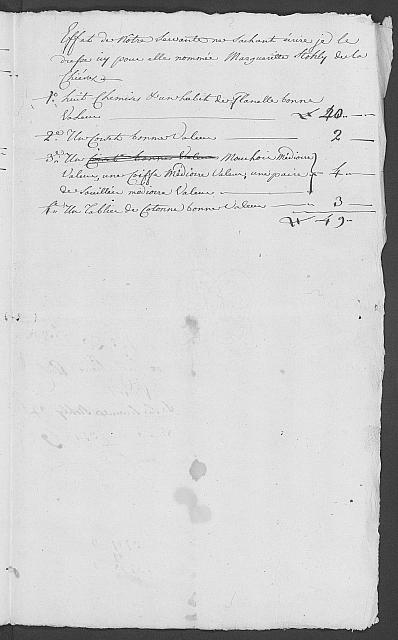 Effait de Notre Servante ne Sachant écrire je le
dresse icy pour elle nommée Margueritte de la
1o huit Chemises & un habit de flanelle bonne
Valeur 40
2o Un bonne Valeur 2
3o Un Mouchoir Médiocre
Valeur, une Coiffe Médiocre Valeur, une paire 4
de Souillée médiocre Valeur
4o Un Tablier de Cotonne bonne Valeur 3
49